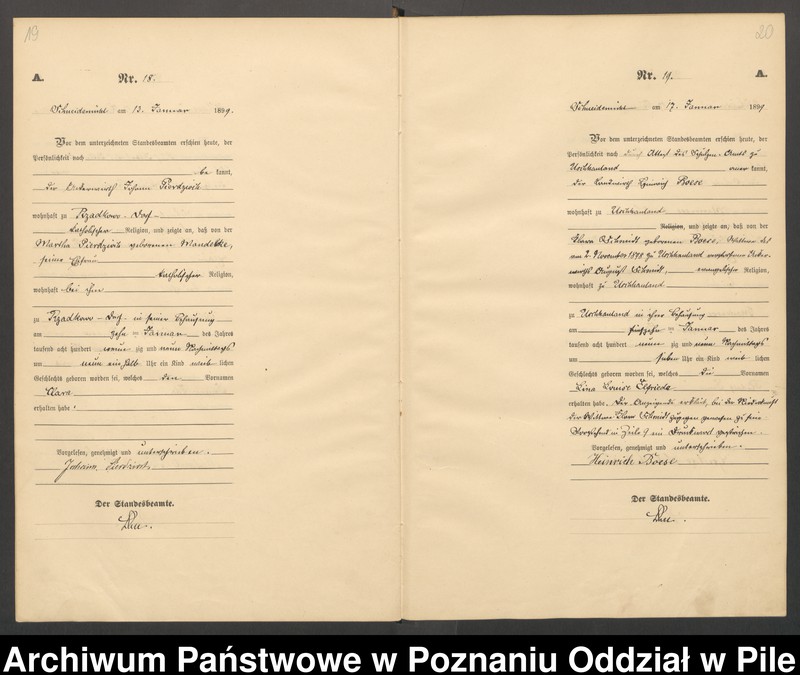 19
A.
Nr. 18.
Schneidemühl am 13. Januar 1899.
Vor dem unterzeichneten Standesbeamten erschien heute, der
Persönlichkeit nach
be kannt,
der Johann
wohnhaft zu Rzadkowo-
katholischer Religion, und zeigte an, daß von der
Martha geborenen
seiner Ehefrau
katholischer Religion,
wohnhaft bei ihm
zu Rzadkowo- in seiner Behausung
am zehn ten Januar des Jahres
tausend acht hundert neun zig und neun Nachmittags
um neun ein halb Uhr ein Kind weib lichen
Geschlechts geboren worden sei, welches den Vornamen
Clara
erhalten habe.
Vorgelesen, genehmigt und unterschrieben.
Johann
Der Standesbeamte.
20
Nr. 19.
A.
Schneidemühl am 17. Januar 1899
Vor dem unterzeichneten Standesbeamten erschien heute, der
Persönlichkeit nach durch Attest des Schulzen-Amts zu
Uschhauland aner kannt,
der Landwirth Heinrich Boese
wohnhaft zu Uschhauland
Religion, und zeigte an, daß von der
Klara Schmidt geborenen Boese, Wittwe des
am 2. November 1898 zu Uschhauland verstorbenen
August Schmidt, evangelischer Religion,
wohnhaft zu Uschhauland
zu Uschhauland in ihrer Behausung
am fünfzehn ten Januar des Jahres
tausend acht hundert neun zig und neun Nachmittags
um sieben Uhr ein Kind weib lichen
Geschlechts geboren worden sei, welches die Vornamen
Lina Louise Elfriede
erhalten habe. Der Anzeigende erklärt, bei der Niederkunft
der Wittwe Klara Schmidt zugegen gewesen zu sein.
Vorstehend in Zeile 9 ein Druckwort gestrichen.
Vorgelesen, genehmigt und unterschrieben.
Heinrich Boese
Der Standesbeamte.
Archiwum Państwowe w Poznaniu Oddział w Pile